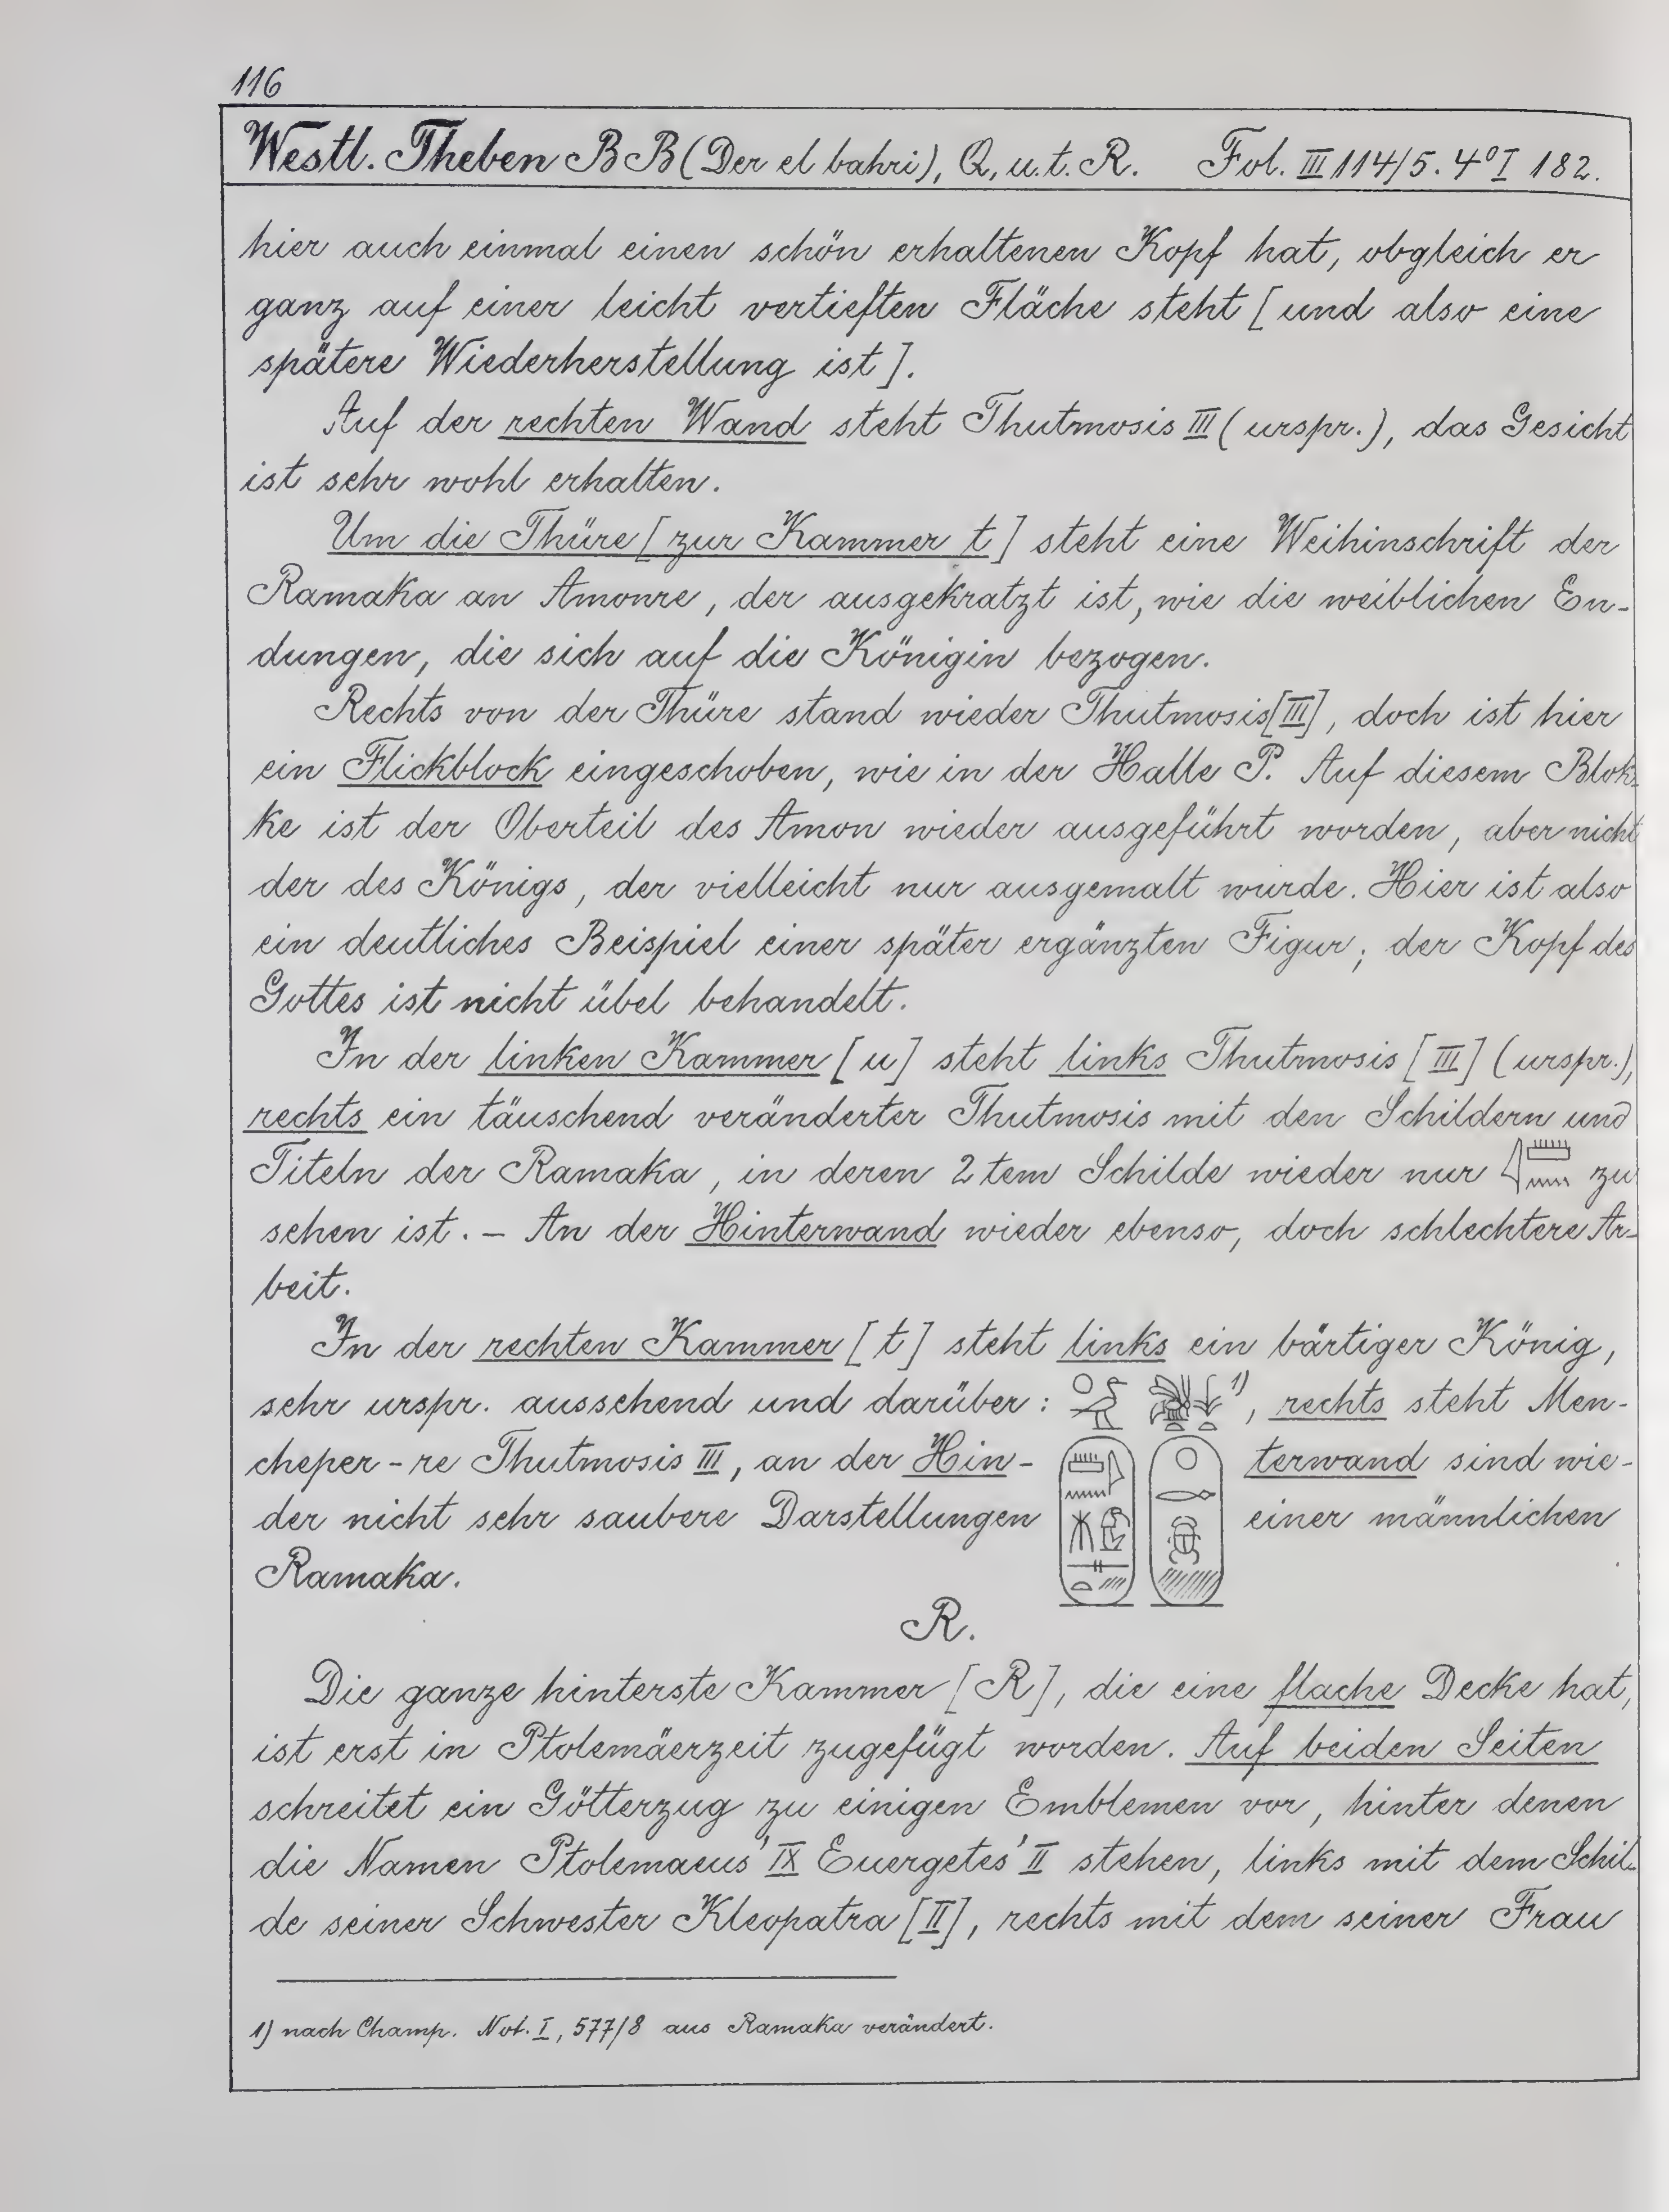 116
Westl. Theben BB (Der el bahri), Q, u. t. R. Fol. III 114/5. 4° I 182.
hier auch einmal einen schön erhaltenen Kopf hat, obgleich er
ganz auf einer leicht vertieften Fläche steht [und also eine
spätere Wiederherstellung ist].
Auf der rechten Wand steht Thutmosis III (urspr.), das Gesicht
ist sehr wohl erhalten.
Um die Thüre [zur Kammer t] steht eine Weihinschrift der
Ramaka an Amonre, der ausgekratzt ist, wie die weiblichen En-
dungen, die sich auf die Königin bezogen.
Rechts von der Thüre stand wieder Thutmosis [III], doch ist hier
ein Flickblock eingeschoben, wie in der Halle P. Auf diesem Blok-
ke ist der Oberteil des Amon wieder ausgeführt worden, aber nicht
der des Königs, der vielleicht nur ausgemalt wurde. Hier ist also
ein deutliches Beispiel einer später ergänzten Figur; der Kopf des
Gottes ist nicht übel behandelt.
In der linken Kammer [u] steht links Thutmosis [III] (urspr.),
rechts ein täuschend veränderter Thutmosis mit den Schildern und
Titeln der Ramaka, in deren 2tem Schilde wieder nur 𓇋𓏠𓈖 zu
sehen ist. – An der Hinterwand wieder ebenso, doch schlechtere Ar-
beit.
In der rechten Kammer [t] steht links ein bärtiger König,
sehr urspr. aussehend und darüber: 1), rechts steht Men-
cheper-re Thutmosis III, an der Hin- terwand sind wie-
der nicht sehr saubere Darstellungen einer männlichen
Ramaka.
R.
Die ganze hinterste Kammer [R], die eine flache Decke hat,
ist erst in Ptolemäerzeit zugefügt worden. Auf beiden Seiten
schreitet ein Götterzug zu einigen Emblemen vor, hinter denen
die Namen Ptolemaeus' IX Euergetes' II stehen, links mit dem Schil-
de seiner Schwester Kleopatra [II], rechts mit dem seiner Frau
1) nach Champ. Not. I, 577/8 aus Ramaka verändert.